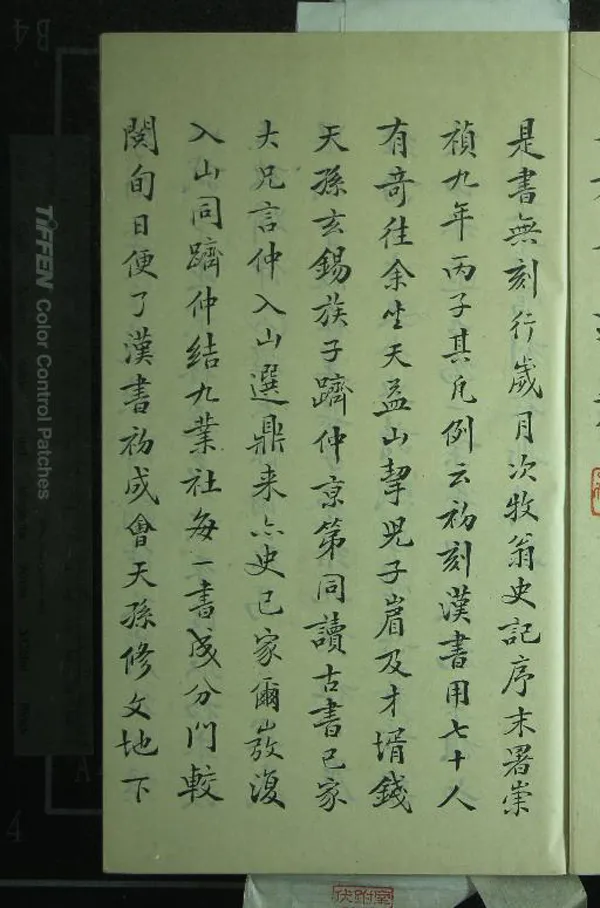 是書無刻行歲月次牧翁史記序末署崇
禎九年丙子其凡例云初刻漢書用七十人
有奇往余坐天益山挈兒子眉及才壻錢
天孫玄錫族子躋仲京第同讀古書已家
大兄言仲入山選鼎来亦史已家爾嶷復
入山同躋仲結九業社每一書成分門較
閱旬日便了漢書初成會天孫修文地下
TIFFEN Color Control Patches
伏跗室